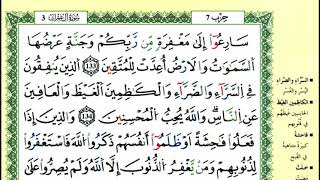 حزب 7
سورة آل عمران 3
سَارِعُوٓاْ إِلَىٰ مَغْفِرَةٍ مِّن رَّبِّكُمْ وَجَنَّةٍ عَرْضُهَا
اَ۬لسَّمَٰوَٰتُ وَالَارْضُ أُعِدَّتْ لِلْمُتَّقِينَ 133 اَ۬لذِينَ يُنفِقُونَ
فِے اِ۬لسَّرَّآءِ وَالضَّرَّآءِ وَالْكَٰظِمِينَ اَ۬لْغَيْظَ وَالْعَافِينَ
عَنِ اِ۬لنَّاسِ وَاللَّهُ يُحِبُّ اُ۬لْمُحْسِنِينَ 134 وَالذِينَ إِذَا
فَعَلُواْ فَٰحِشَةً اَوْ ظَلَمُوٓاْ أَنفُسَهُمْ ذَكَرُواْ اُ۬للَّهَ فَاسْتَغْفَرُواْ
لِذُنُوبِهِمْ وَمَنْ يَّغْفِرُ اُ۬لذُّنُوبَ إِلَّا اَ۬للَّهُ وَلَمْ يُصِرُّواْ عَلَىٰ
السراء والضراء
اليسر والعسر
الكاظمين الغيظ
الحابسين غيظهم
في قلوبهم
فاحشة
كبيرة متناهية
في القبح